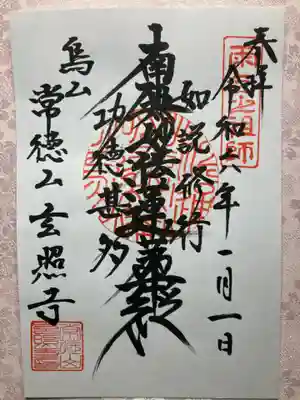 奉拝
令和六年一月一日
雨乞祖師
如説修行
南無妙法蓮華経
功徳甚多
烏山
常徳山玄照寺